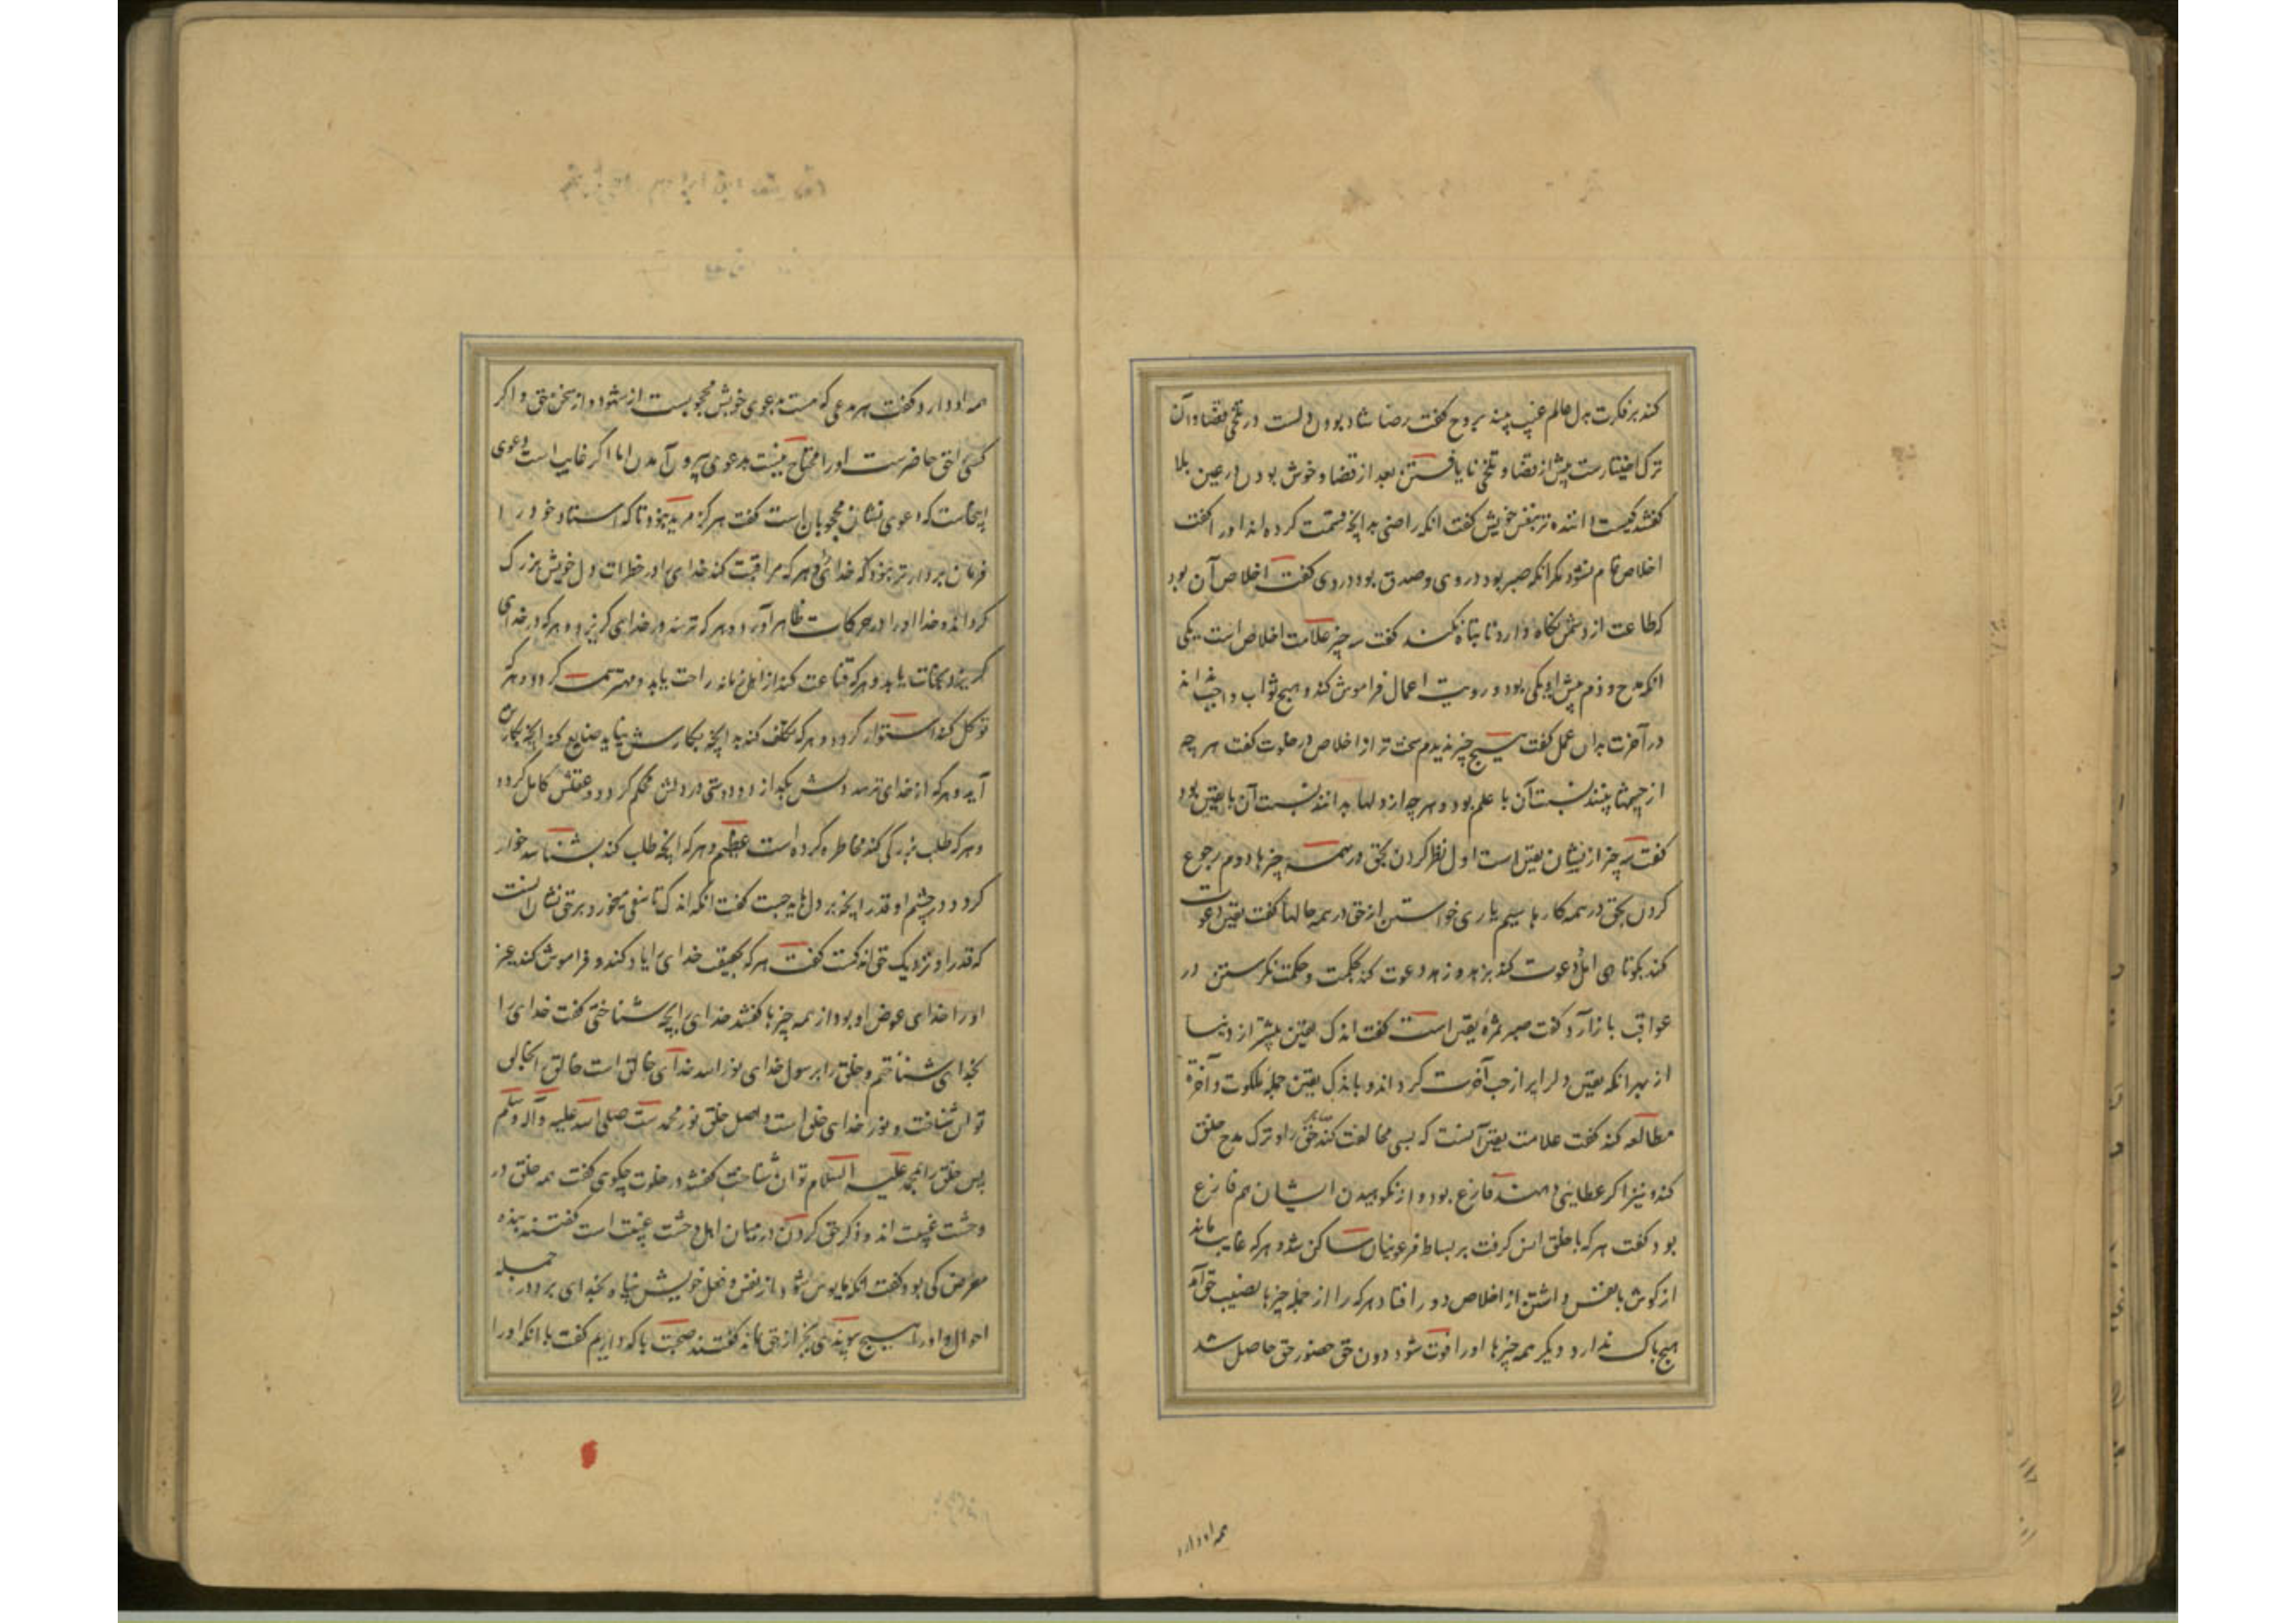 کند بر فکرت بدل عالم غیب بیند بروح گفت رضا شاد بودن دلست در تلخی قضا و آن
ترک اختیارست پیش از قضا و تلخی نایافتن بعد از قضا و خوش بودن در عین بلا
گفتند کیست داننده‌تر بنفس خویش گفت انکه راضی بدانچه قسمت کرده‌اند او را گفت
اخلاص تمام نشود مگر انکه صبر بود در وی و صدق بود در وی گفت اخلاص آن بود
که طاعت از دشمن نگاه دارد تا تباه نکند گفت سه چیز علامت اخلاص است یکی
انکه مدح و ذم پیش او یکی بود و رویت اعمال فراموش کند و هیچ ثواب واجب نداند
در آخرت بدان عمل گفت هیچ چیز ندیدم سخت تر از اخلاص در خلوت گفت هر چه
از چشمها بینند نسبت آن با علم بود و هر چه از دلها بدانند نسبت آن با یقین بود
گفت سه چیز از نشان یقین است اول نظر کردن بحق در همه چیزها دوم رجوع
کردن بحق در همه کارها سیم یاری خواستن از حق در همه حالها گفت یقین دعوت
کند بکوتاهی امل دعوت کند بزهد و زهد دعوت کند بحکمت و حکمت نگرستن در
عواقب بار آرد گفت صبر ثمره یقین است گفت اندک یقین بیشتر از دنیا
از بهر انکه یقین دلرا پر از حب آخرت گرداند و باندک یقین جمله ملکوت و آخرة
مطالعه کند گفت علامت یقین آنست که بسی مخالفت کند خلق را و ترک مدح خلق
کند و نیز اگر عطایی دهند فارغ بود و از نکوهیدن ایشان هم فارغ
بود گفت هر که با خلق انس گرفت بر بساط فرعونیان ساکن شد و هر که غایب ماند
از گوش با نفس داشتن از اخلاص دور افتاد هر که را از جمله چیزها نصیب حق آمد
هیچ باک ندارد دیگر همه چیزها او را فوت شود دون حق حضور حق حاصل شد
همه او دارد
همه او دارد گفت هر مدعی که هست بدعوی خویش محجوبست از شهود و از سخن حق و اگر
کسی را حق حاضرست او را محتاج نیست بدعوی بیرون آمدن اما اگر غایب است دعوی
اینجاست که دعوی نشان محجوبان است گفت هرگز مرید نبود تا که استاد خود را
فرمان بردارتر نبود که خدایرا و هر که مراقبت کند خدای را در خطرات دل خویش بزرگ
گرداند خدا او را در حرکات ظاهر آورد و هر که ترسد در خدای گریزد و هر که در خدای
گریزد نجات یابد و هر که قناعت کند از اهل زمانه راحت یابد و مهتر همه گردد و هر که
توکل کند استوار گردد و هر که تکلف کند بدانچه بکارش نیاید ضایع کند انچه بکارش
آید و هر که از خدای ترسد دلش بگدازد و دوستی در دلش محکم گردد و عقلش کامل گردد
و هر که طلب بزرگی کند مخاطره کرده است عظیم و هر که انچه طلب کند بشناسد خوار
گردد در چشم او قدر انچه بر دلها چیست گفت انکه اندک تاسفی میخورد بر حق نشان آنست
که قدر او نزدیک حق اندکست گفت هر که بحقیقت خدای را یاد کند و فراموش کند غیر
او را خدای عوض او بود از همه چیزها گفتند خدای را بچه شناختی گفت خدای را
بخدای شناختم و خلق را برسول خدای نور الله خدای خالق است خالق را بخالق
توان شناخت و نور خدای خلق است و اصل خلق نور محمد ست صلی الله علیه و آله و سلم
پس خلق را بمحمد علیه السلام توان شناخت گفتند در خلوت چگوی گفت همه خلق در
وحشت غیبت اند و ذکر حق کردن در میان اهل وحشت غیبت است گفتند بنده
معرض کی بود گفت انکه مایوس شود از نفس و فعل خویش پناه بخدای برد در جمله
احوال و او را هیچ پیوندی بجز از حق نماند گفتند صحبت با که داریم گفت با انکه او را